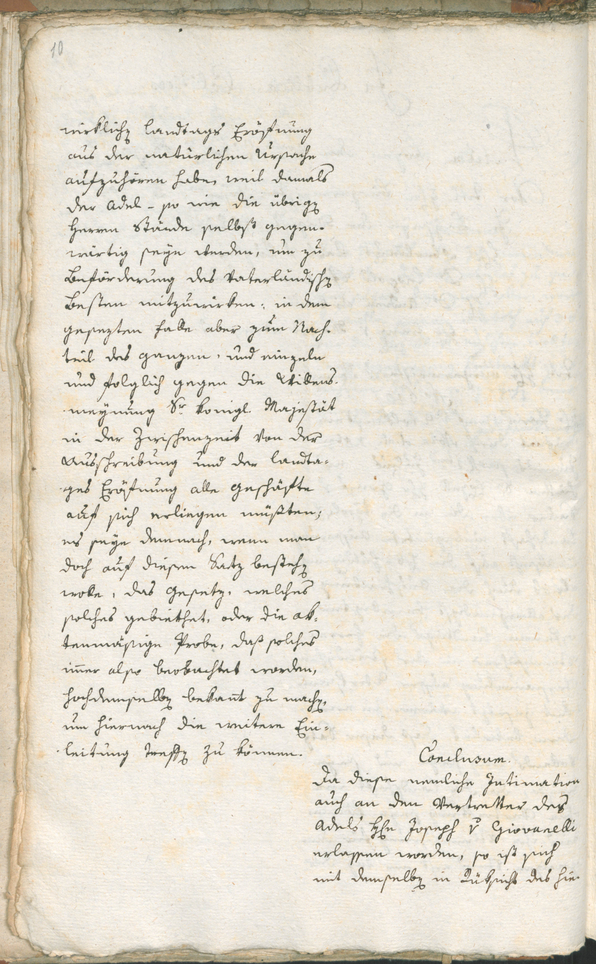 10
wirklichen Landtags Eröfnung
aus der natürlichen Ursache
aufzuhören habe, weil damals
der Adel - so wie die übrigen
Herren Stände selbst gegen-
wärtig seyn werden, um zu
Beförderung des Vaterländischen
Besten mitzuwirken; in dem
gesezten falle aber zum Nach-
teil des ganzen, und einzeln
und folglich gegen die Willens-
meynung Sr Königl. Majestät
in der Zwischenzeit von der
Ausschreibung und der Landta-
ges Eröfnung alle Geschäfte
auf sich erliegen müßten;
es seye demnach, wenn man
doch auf diesem Satz bestehen
wolle, das Gesetz, welches
solches gebiethet, oder die ak-
tenmäsige Probe, daß solches
immer also beobachtet worden,
hochdemselben bekant zu machen,
um hiernach die weitere Ein-
leitung treffen zu können.
Conclusum.
Da diese nemliche Intimation
auch an den Vertretter des
Adels Hrn Joseph v Giovanelli
erlassen worden, so ist sich
mit demselben in Rüksicht des hie-